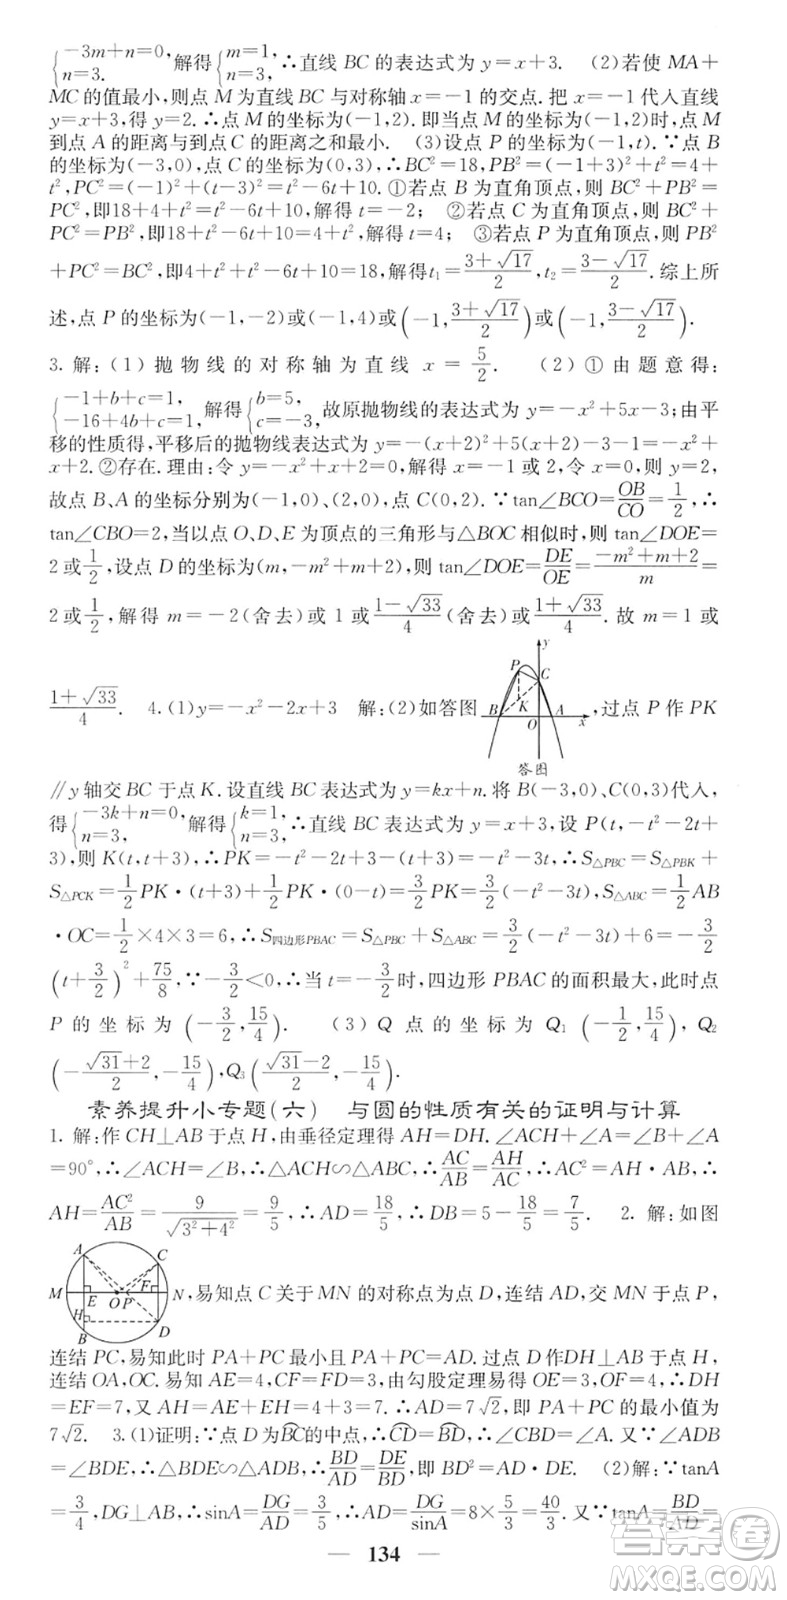 {−3m+n=0, n=3. 解得{m=1, n=3, ∴直线 BC 的表达式为 y=x+3. (2)若使 MA+
MC 的值最小,则点 M 为直线 BC 与对称轴 x=−1 的交点. 把 x=−1 代入直线
y=x+3,得 y=2. ∴点 M 的坐标为(−1,2). 即当点 M 的坐标为(−1,2)时,点 M
到点 A 的距离与到点 C 的距离之和最小. (3)设点 P 的坐标为(−1,t). ∵点 B
的坐标为(−3,0),点 C 的坐标为(0,3),∴BC²=18,PB²=(−1+3)²+t²=4+
t²,PC²=(−1)²+(t−3)²=t²−6t+10. ①若点 B 为直角顶点,则 BC²+PB²=
PC²,即18+4+t²=t²−6t+10,解得 t=−2; ②若点 C 为直角顶点,则 BC²+
PC²=PB²,即18+t²−6t+10=4+t²,解得 t=4; ③若点 P 为直角顶点,则PB²
+PC²=BC²,即4+t²+t²−6t+10=18,解得t₁=(3+√17)/2,t₂=(3−√17)/2. 综上所
述,点 P 的坐标为(−1,−2)或(−1,4)或(−1,(3+√17)/2)或(−1,(3−√17)/2).
3. 解:(1) 抛物线的对称轴为直线 x=5/2. (2) ① 由题意得:
{−1+b+c=1, −16+4b+c=1, 解得{b=5, c=−3, 故原抛物线的表达式为 y=−x²+5x−3;由平
移的性质得,平移后的抛物线表达式为 y=−(x+2)²+5(x+2)−3−1=−x²+
x+2. ②存在. 理由:令 y=−x²+x+2=0,解得 x=−1 或 2,令 x=0,则 y=2,
故点 B、A 的坐标分别为(−1,0)、(2,0),点 C(0,2). ∵tan∠BCO=OB/CO=1/2,∴
tan∠CBO=2,当以点 O、D、E 为顶点的三角形与△BOC 相似时,则 tan∠DOE=
2 或 1/2,设点 D 的坐标为(m,−m²+m+2),则 tan∠DOE=DE/OE=(−m²+m+2)/m=
2 或 1/2,解得 m=−2(舍去)或 1 或 (1−√33)/4(舍去)或 (1+√33)/4. 故 m=1 或
(1+√33)/4. 4.(1)y=−x²−2x+3 解:(2)如答图 ,过点 P 作 PK
y P C K B O A x
答图
∥y 轴交 BC 于点 K. 设直线 BC 表达式为 y=kx+n. 将 B(−3,0)、C(0,3)代入,
得{−3k+n=0, n=3, 解得{k=1, n=3, ∴直线 BC 的表达式为 y=x+3,设 P(t,−t²−2t+
3),则 K(t,t+3),∴PK=−t²−2t+3−t−3=−t²−3t,∴S△PBC=S△PBK+
S△PCK=1/2PK·(t+3)+1/2PK·(0−t)=3/2PK=3/2(−t²−3t),S△ABC=1/2AB
·OC=1/2×4×3=6,∴S四边形PBAC=S△PBC+S△ABC=3/2(−t²−3t)+6=−3/2
(t+3/2)²+75/8,∵−3/2<0,∴当 t=−3/2时,四边形 PBAC 的面积最大,此时点
P 的坐标为(−3/2,15/4). (3) Q 点的坐标为 Q₁(−1/2,15/4),Q₂
(−(√31+2)/2,−15/4),Q₃((√31−2)/2,−15/4).
素养提升小专题(六) 与圆的性质有关的证明与计算
1. 解:作 CH⊥AB 于点 H,由垂径定理得 AH=DH. ∠ACH+∠A=∠B+∠A
=90°,∴∠ACH=∠B,∴△ACH∽△ABC,∴AC/AB=AH/AC. ∴AC²=AH·AB,
AH=AC²/AB=9/√(3²+4²)=9/5,∴AD=18/5,∴DB=5−18/5=7/5. 2. 解:如图
A C M E O P F N H B D
,易知点 C 关于 MN 的对称点为点 D,连结 AD,交 MN 于点 P,
连结 PC,易知此时 PA+PC 最小且 PA+PC=AD. 过点 D作DH⊥AB 于点 H,
连结 OA,OC. 易知 AE=4,CF=FD=3,由勾股定理可得 OE=3,OF=4,∴DH=
EF=7,又 AH=AE+EH=4+3=7. ∴AD=7√2,即 PA+PC 的最小值为
7√2. 3.(1)证明:∵点 D为BC的中点,∴CD=BD,∴∠CBD=∠CAD. 又∵∠ADB
=∠BDE,∴△BDE∽△ADB,∴BD/AD=DE/BD,即 BD²=AD·DE. (2)解:∵tanA
=3/4,DG⊥AB,∴sinA=DG/AD=3/5,∴AD=DG/sinA=8×5/3=40/3. 又∵tanA=BD/AD=
134
答案圈
MXQE.COM